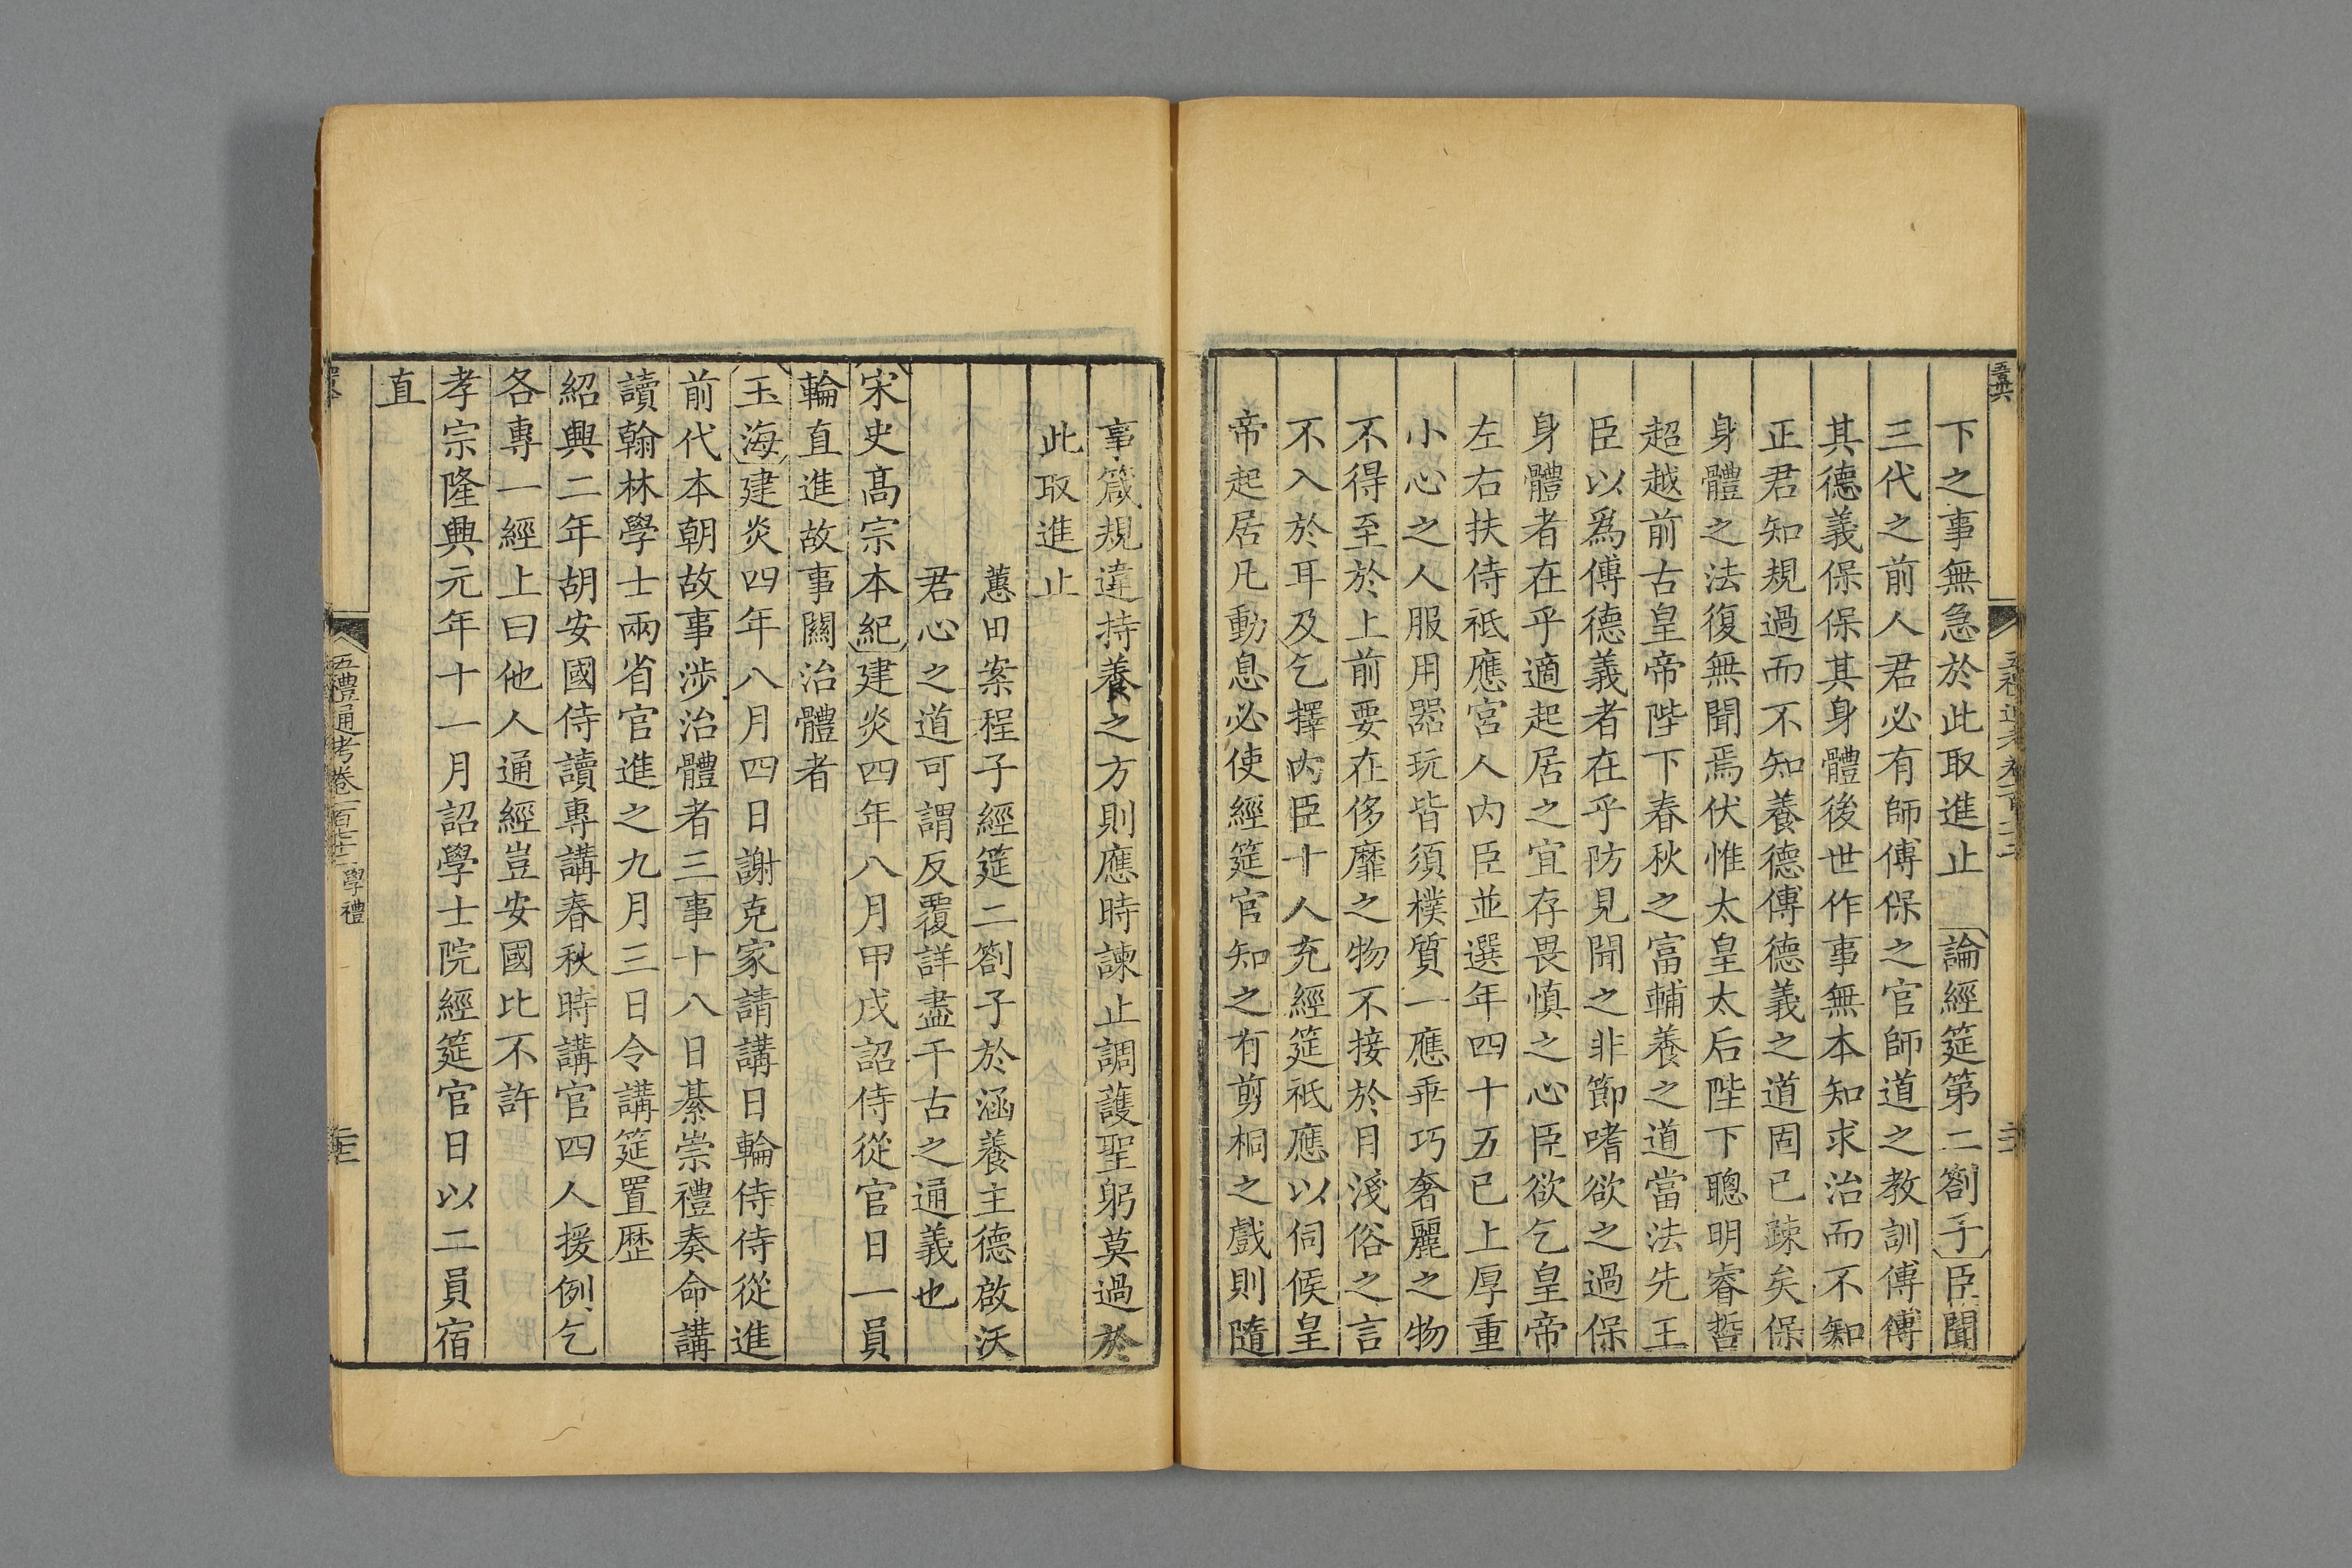 下之事無急於此取進止 論經筵第二劄子臣聞
三代之前人君必有師傅保之官師道之教訓傅傅
其德義保保其身體後世作事無本知求治而不知
正君知規過而不知養德傅德義之道固已疎矣保
身體之法復無聞焉伏惟太皇太后陛下聰明睿哲
超越前古皇帝陛下春秋之富輔養之道當法先王
臣以爲傅德義者在乎防見聞之非節嗜欲之過保
身體者在乎適起居之宜存畏慎之心臣欲乞皇帝
左右扶侍祗應宮人內臣並選年四十五已上厚重
小心之人服用器玩皆須樸質一應乖巧奢麗之物
不得至於上前要在侈靡之物不接於目淺俗之言
不入於耳及乞擇內臣十人充經筵祗應以伺候皇
帝起居凡動息必使經筵官知之有剪桐之戲則隨
事箴規違持養之方則應時諫止調護聖躬莫過於
此取進止
蕙田案程子經筵二劄子於涵養主德啟沃
君心之道可謂反覆詳盡千古之通義也
宋史高宗本紀建炎四年八月甲戌詔侍從官日一員
輪直進故事關治體者
玉海建炎四年八月四日謝克家請講日輪侍侍從進
前代本朝故事涉治體者三事十八日綦崇禮奏命講
讀翰林學士兩省官進之九月三日令講筵置歷
紹興二年胡安國侍讀專講春秋時講官四人援例乞
各專一經上曰他人通經豈安國比不許
孝宗隆興元年十一月詔學士院經筵官日以二員宿
直
五禮通考卷一百七十二 學禮